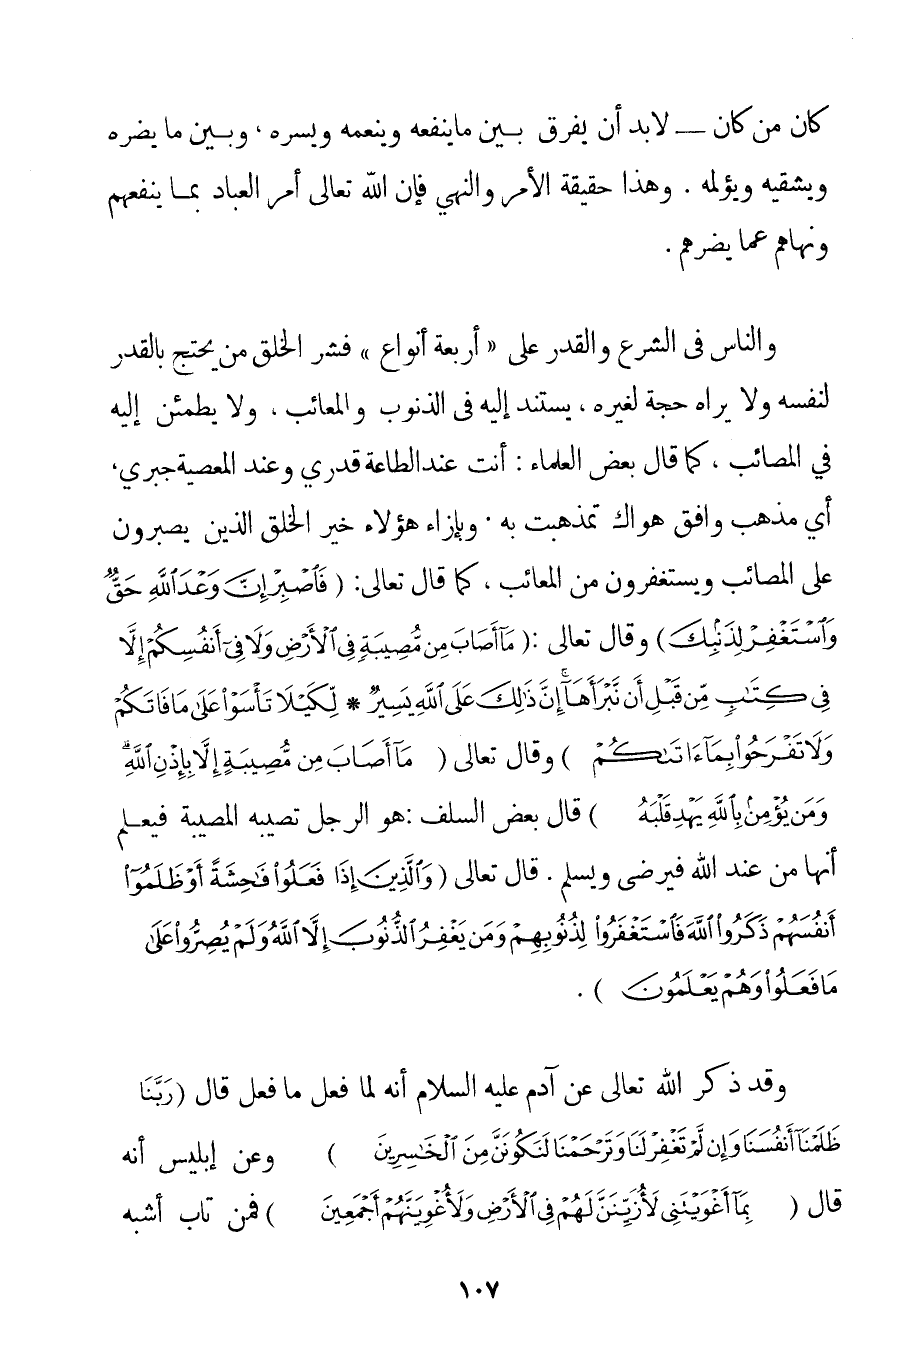 كان من كان — لابد أن يفرق بين ماينفعه وينعمه ويسره ، وبين ما يضره
ويشقيه ويؤلمه . وهذا حقيقة الأمر والنهي فإن الله تعالى أمر العباد بما ينفعهم
ونهاهم عما يضرهم .
والناس فى الشرع والقدر على « أربعة أنواع » فشر الخلق من يحتج بالقدر
لنفسه ولا يراه حجة لغيره ، يستند إليه فى الذنوب والمعائب ، ولا يطمئن إليه
في المصائب ، كما قال بعض العلماء : أنت عند الطاعة قدري وعند المعصية جبري ،
أي مذهب وافق هواك تمذهبت به . وبإزاء هؤلاء خير الخلق الذين يصبرون
على المصائب ويستغفرون من المعائب ، كما قال تعالى: ( فَٱصْبِرْ إِنَّ وَعْدَ ٱللَّهِ حَقٌّ
وَٱسْتَغْفِرْ لِذَنۢبِكَ ) وقال تعالى :( مَآ أَصَابَ مِن مُّصِيبَةٍ فِى ٱلْأَرْضِ وَلَا فِىٓ أَنفُسِكُمْ إِلَّا
فِى كِتَٰبٍ مِّن قَبْلِ أَن نَّبْرَأَهَآ ۚ إِنَّ ذَٰلِكَ عَلَى ٱللَّهِ يَسِيرٌ * لِّكَيْلَا تَأْسَوْا۟ عَلَىٰ مَا فَاتَكُمْ
وَلَا تَفْرَحُوا۟ بِمَآ ءَاتَىٰكُمْ ) وقال تعالى ( مَآ أَصَابَ مِن مُّصِيبَةٍ إِلَّا بِإِذْنِ ٱللَّهِ ۗ
وَمَن يُؤْمِنۢ بِٱللَّهِ يَهْدِ قَلْبَهُ ) قال بعض السلف :هو الرجل تصيبه المصيبة فيعلم
أنها من عند الله فيرضى ويسلم . قال تعالى ( وَٱلَّذِينَ إِذَا فَعَلُوا۟ فَٰحِشَةً أَوْ ظَلَمُوٓا۟
أَنفُسَهُمْ ذَكَرُوا۟ ٱللَّهَ فَٱسْتَغْفَرُوا۟ لِذُنُوبِهِمْ وَمَن يَغْفِرُ ٱلذُّنُوبَ إِلَّا ٱللَّهُ وَلَمْ يُصِرُّوا۟ عَلَىٰ
مَا فَعَلُوا۟ وَهُمْ يَعْلَمُونَ ) .
وقد ذكر الله تعالى عن آدم عليه السلام أنه لما فعل ما فعل قال ( رَبَّنَا
ظَلَمْنَآ أَنفُسَنَا وَإِن لَّمْ تَغْفِرْ لَنَا وَتَرْحَمْنَا لَنَكُونَنَّ مِنَ ٱلْخَٰسِرِينَ ) وعن إبليس أنه
قال ( بِمَآ أَغْوَيْتَنِى لَأُزَيِّنَنَّ لَهُمْ فِى ٱلْأَرْضِ وَلَأُغْوِيَنَّهُمْ أَجْمَعِينَ ) فمن تاب أشبه
١٠٧